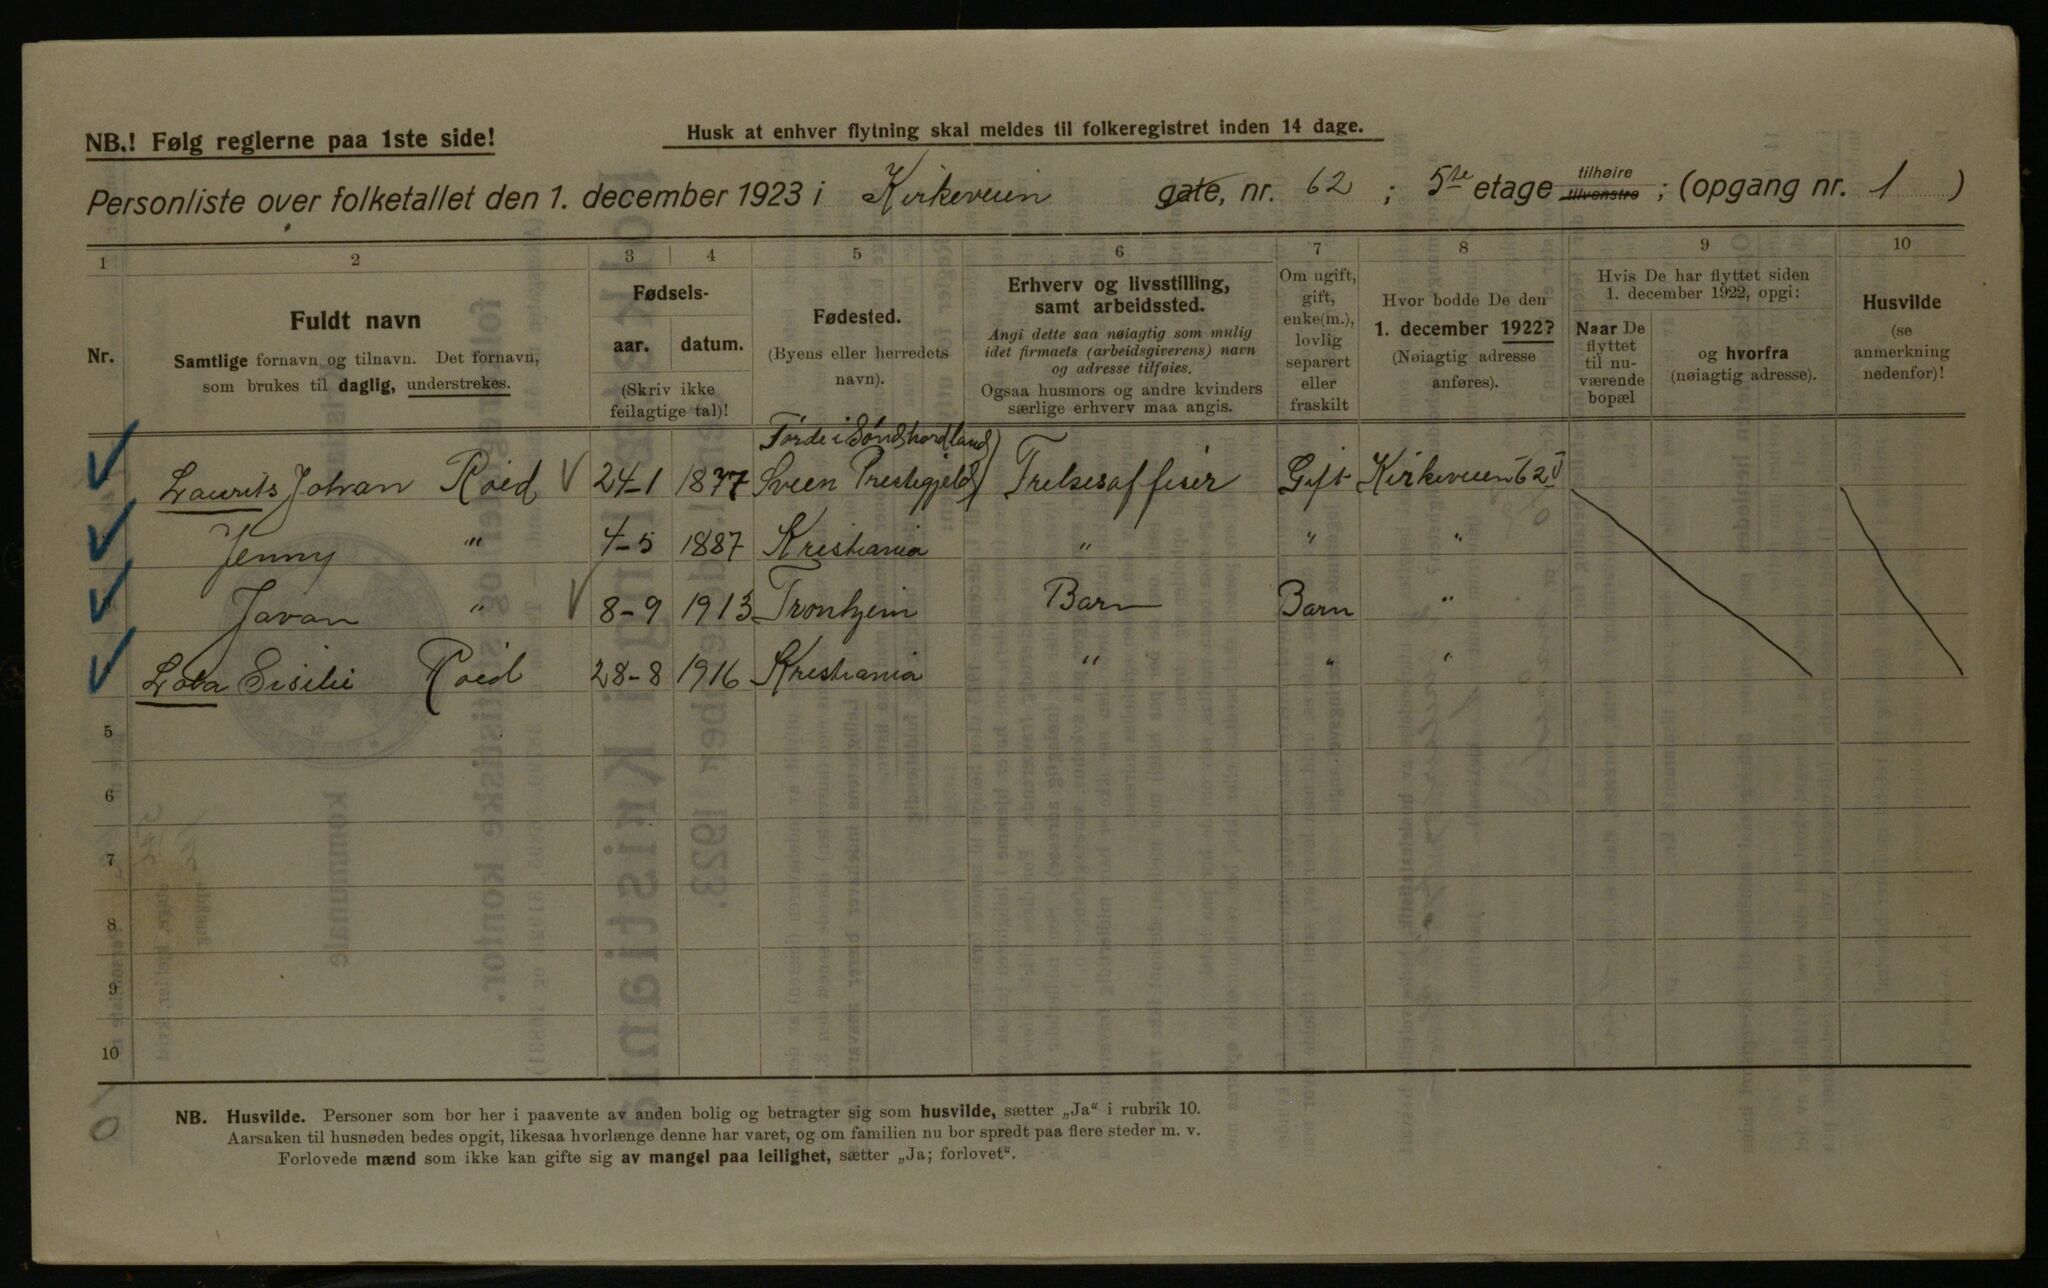 NB.! Følg reglerne paa 1ste side!
Husk at enhver flytning skal meldes til folkeregistret inden 14 dage.
Personliste over folketallet den 1. december 1923 i Kirkeveien gate, nr. 62 ; 5te etage tilhøire tilvenstre ; (opgang nr. 1 )
1 2 3 4 5 6 7 8 9 10
Nr.
Fuldt navn
Samtlige fornavn og tilnavn. Det fornavn,
som brukes til daglig, understrekes.
Fødsels-
aar. datum.
(Skriv ikke
feilagtige tal)!
Fødested.
(Byens eller herredets
navn).
Erhverv og livsstilling,
samt arbeidssted.
Angi dette saa nøiagtig som mulig
idet firmaets (arbeidsgiverens) navn
og adresse tilføies.
Ogsaa husmors og andre kvinders
særlige erhverv maa angis.
Om ugift,
gift,
enke(m.),
lovlig
separert
eller
fraskilt
Hvor bodde De den
1. december 1922?
(Nøiagtig adresse
anføres).
Hvis De har flyttet siden
1. december 1922, opgi:
Naar De
flyttet
til nu-
værende
bopæl
og hvorfra
(nøiagtig adresse).
Husvilde
(se
anmerkning
nedenfor)!
Førde i Søndhordland
Laurits Johan Roed 24-1 1877 Sveen Prestegjeld Frelsesoffiser Gift Kirkeveien 62 V
Jenny " 4-5 1887 Kristiania " " "
Javan " 8-9 1913 Tronhjem Barn Barn "
Lova Sisilie Roed 28-8 1916 Kristiania " " "
5
6
7
8
9
10
NB. Husvilde. Personer som bor her i paavente av anden bolig og betragter sig som husvilde, sætter „Ja" i rubrik 10.
Aarsaken til husnøden bedes opgit, likesaa hvorlænge denne har varet, og om familien nu bor spredt paa flere steder m. v.
Forlovede mænd som ikke kan gifte sig av mangel paa leilighet, sætter „Ja; forlovet".